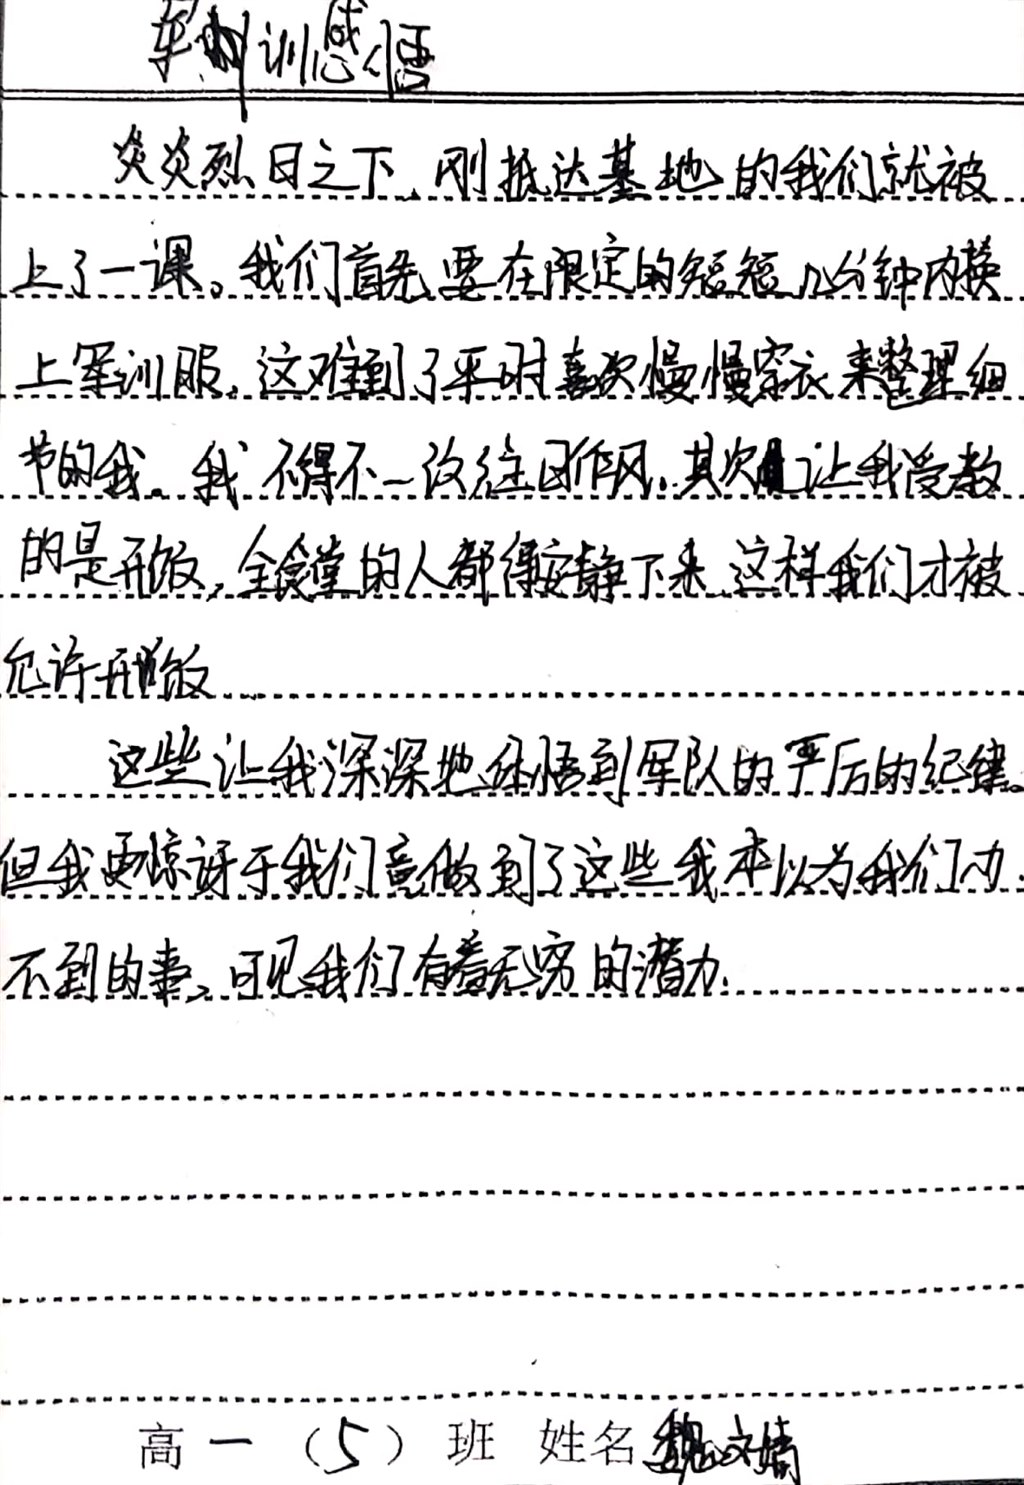 军训感悟
炎炎烈日之下,刚抵达基地的我们就被
上了一课。我们首先要在限定的短短几分钟内换
上军训服,这难到了平时喜欢慢慢穿衣来整理细
节的我。我不得不一改往日作风,其次让我受教
的是开饭,全食堂的人都得安静下来,这样我们才被
允许开饭
这些让我深深地体悟到军队的严厉的纪律。
但我更惊讶于我们竟做到了这些我本以为我们办
不到的事,可见我们有着无穷的潜力.
高一(5)班 姓名魏文婧